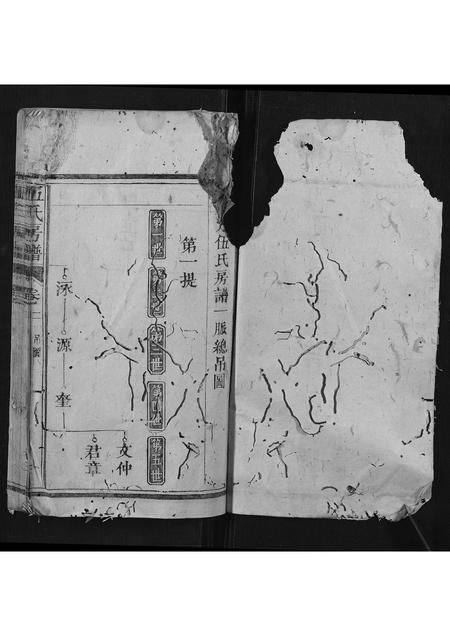 伍氏房譜一脈總吊圖
第一提
第一世
第三世
第四世
第五世
泳 源 奎
文仲
君章
伍氏房譜
卷一 吊圖